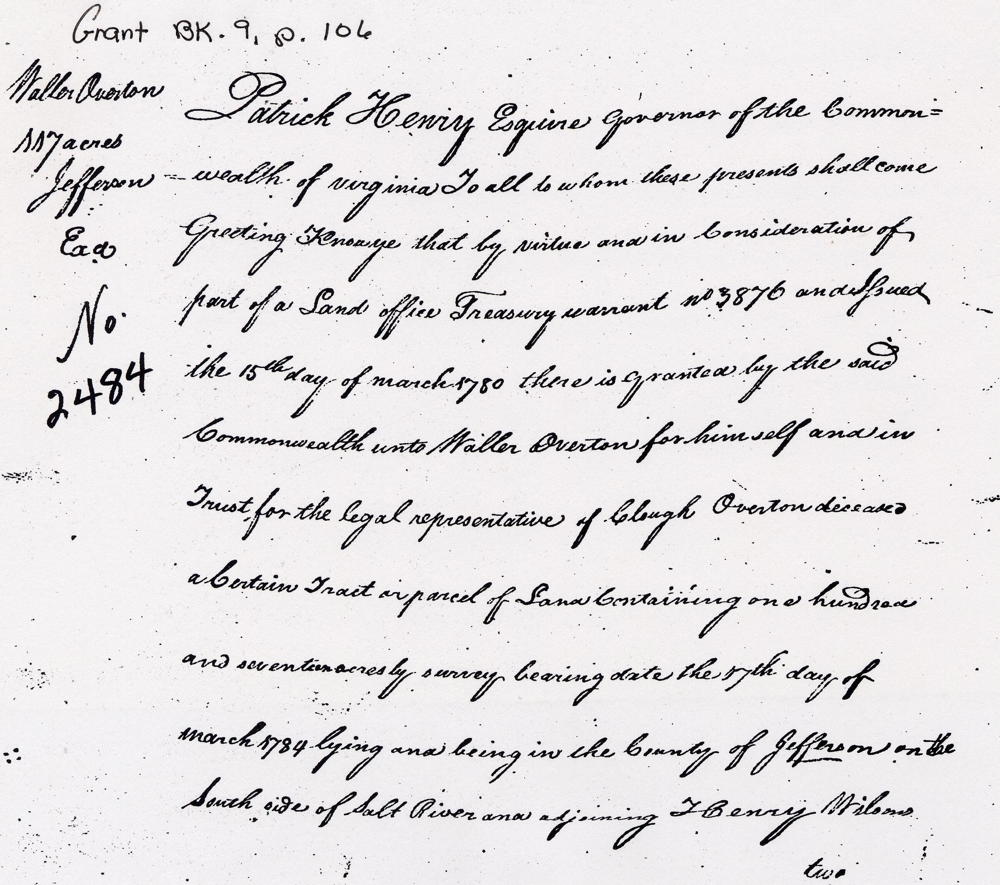 Grant BK. 9, p. 106
Waller Overton
117 acres
Jefferson
Exd
No.
2484
Patrick Henry Esquire Governor of the Common=
=wealth of virginia To all to whom these presents shall come
Greeting Know ye that by virtue and in Consideration of
part of a Land office Treasury warrant no 3876 and Issued
the 15th day of march 1780 there is granted by the said
Commonwealth unto Waller Overton for himself and in
Trust for the legal representative of Clough Overton deceased
a Certain Tract or parcel of Land Containing one hundred
and seventeen acres by survey bearing date the 17th day of
march 1784 lying and being in the County of Jefferson on the
South side of Salt River and adjoining Henry Wilsons
two